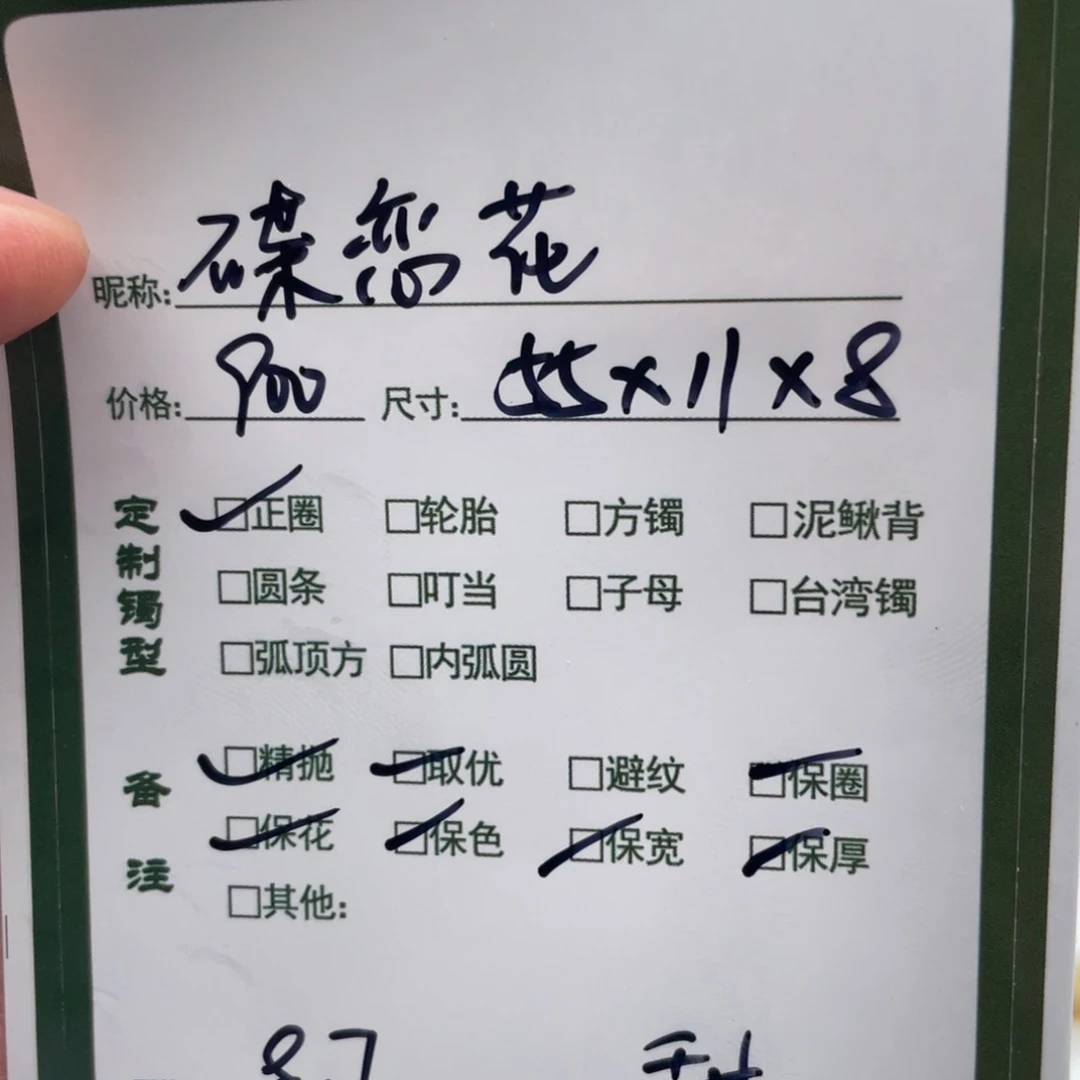 昵称:碟恋花
价格:900 尺寸:55×11×8
定制镯型
☑正圈 □轮胎 □方镯 □泥鳅背
□圆条 □叮当 □子母 □台湾镯
□弧顶方 □内弧圆
备注
☑精抛 ☑取优 □避纹 ☑保圈
☑保花 ☑保色 ☑保宽 ☑保厚
□其他: